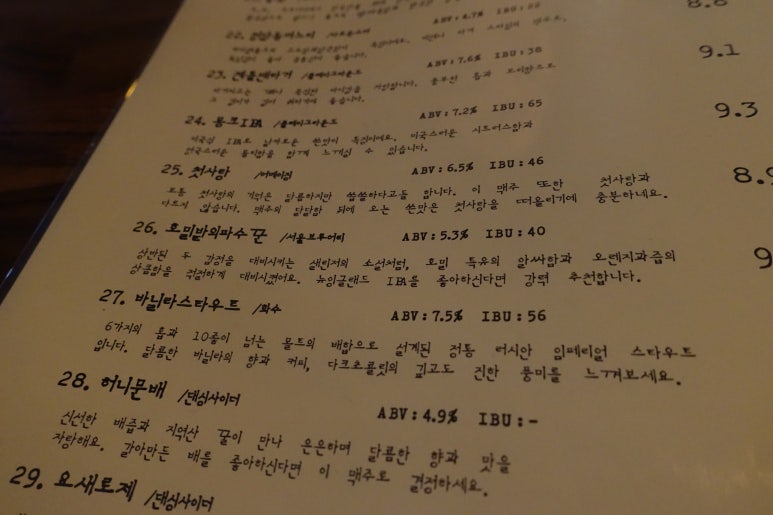 8.8
ABV:4.7%
ABV:7.6% IBU:38
9.1
24. 홉크IPA /플레이그라운드
ABV:7.2% IBU:65
9.3
미국식 IPA로 쓴맛이 특징이에요. 미국스러운 시트러스함과
느끼실 수 있습니다.
25. 첫사랑
ABV:6.5% IBU:46
보통 첫사랑의 기억은 달콤하지만 씁쓸하다고들 합니다. 이 맥주 또한 첫사랑과
다르지 않습니다. 맥주의 달달함 뒤에 오는 쓴맛은 첫사랑을 떠올리기에 충분하네요.
26. 호밀밭의파수꾼 /서울브루어리
ABV:5.3% IBU:40
상반된 두 감정을 대비시키는 샐린저의 소설처럼, 호밀 특유의 알싸함과 오렌지과즙의
상큼함을 적절하게 대비시켰어요. 뉴잉글랜드 IPA를 좋아하신다면 강력 추천합니다.
27. 바닐라스타우트 /화수
ABV:7.5% IBU:56
6가지의 홉과 10종이 넘는 몰트의 배합으로 설계된 정통 러시안 임페리얼 스타우트
입니다. 달콤한 바닐라의 향과 커피, 다크초콜릿의 깊고도 진한 풍미를 느껴보세요.
28. 허니문배 /댄싱사이더
ABV:4.9% IBU:-
신선한 배즙과 지역산 꿀이 만나 은은하며 달콤한 향과 맛을
자랑해요. 갈아만든 배를 좋아하신다면 이 맥주로 결정하세요.
29. 요새로제 /댄싱사이더